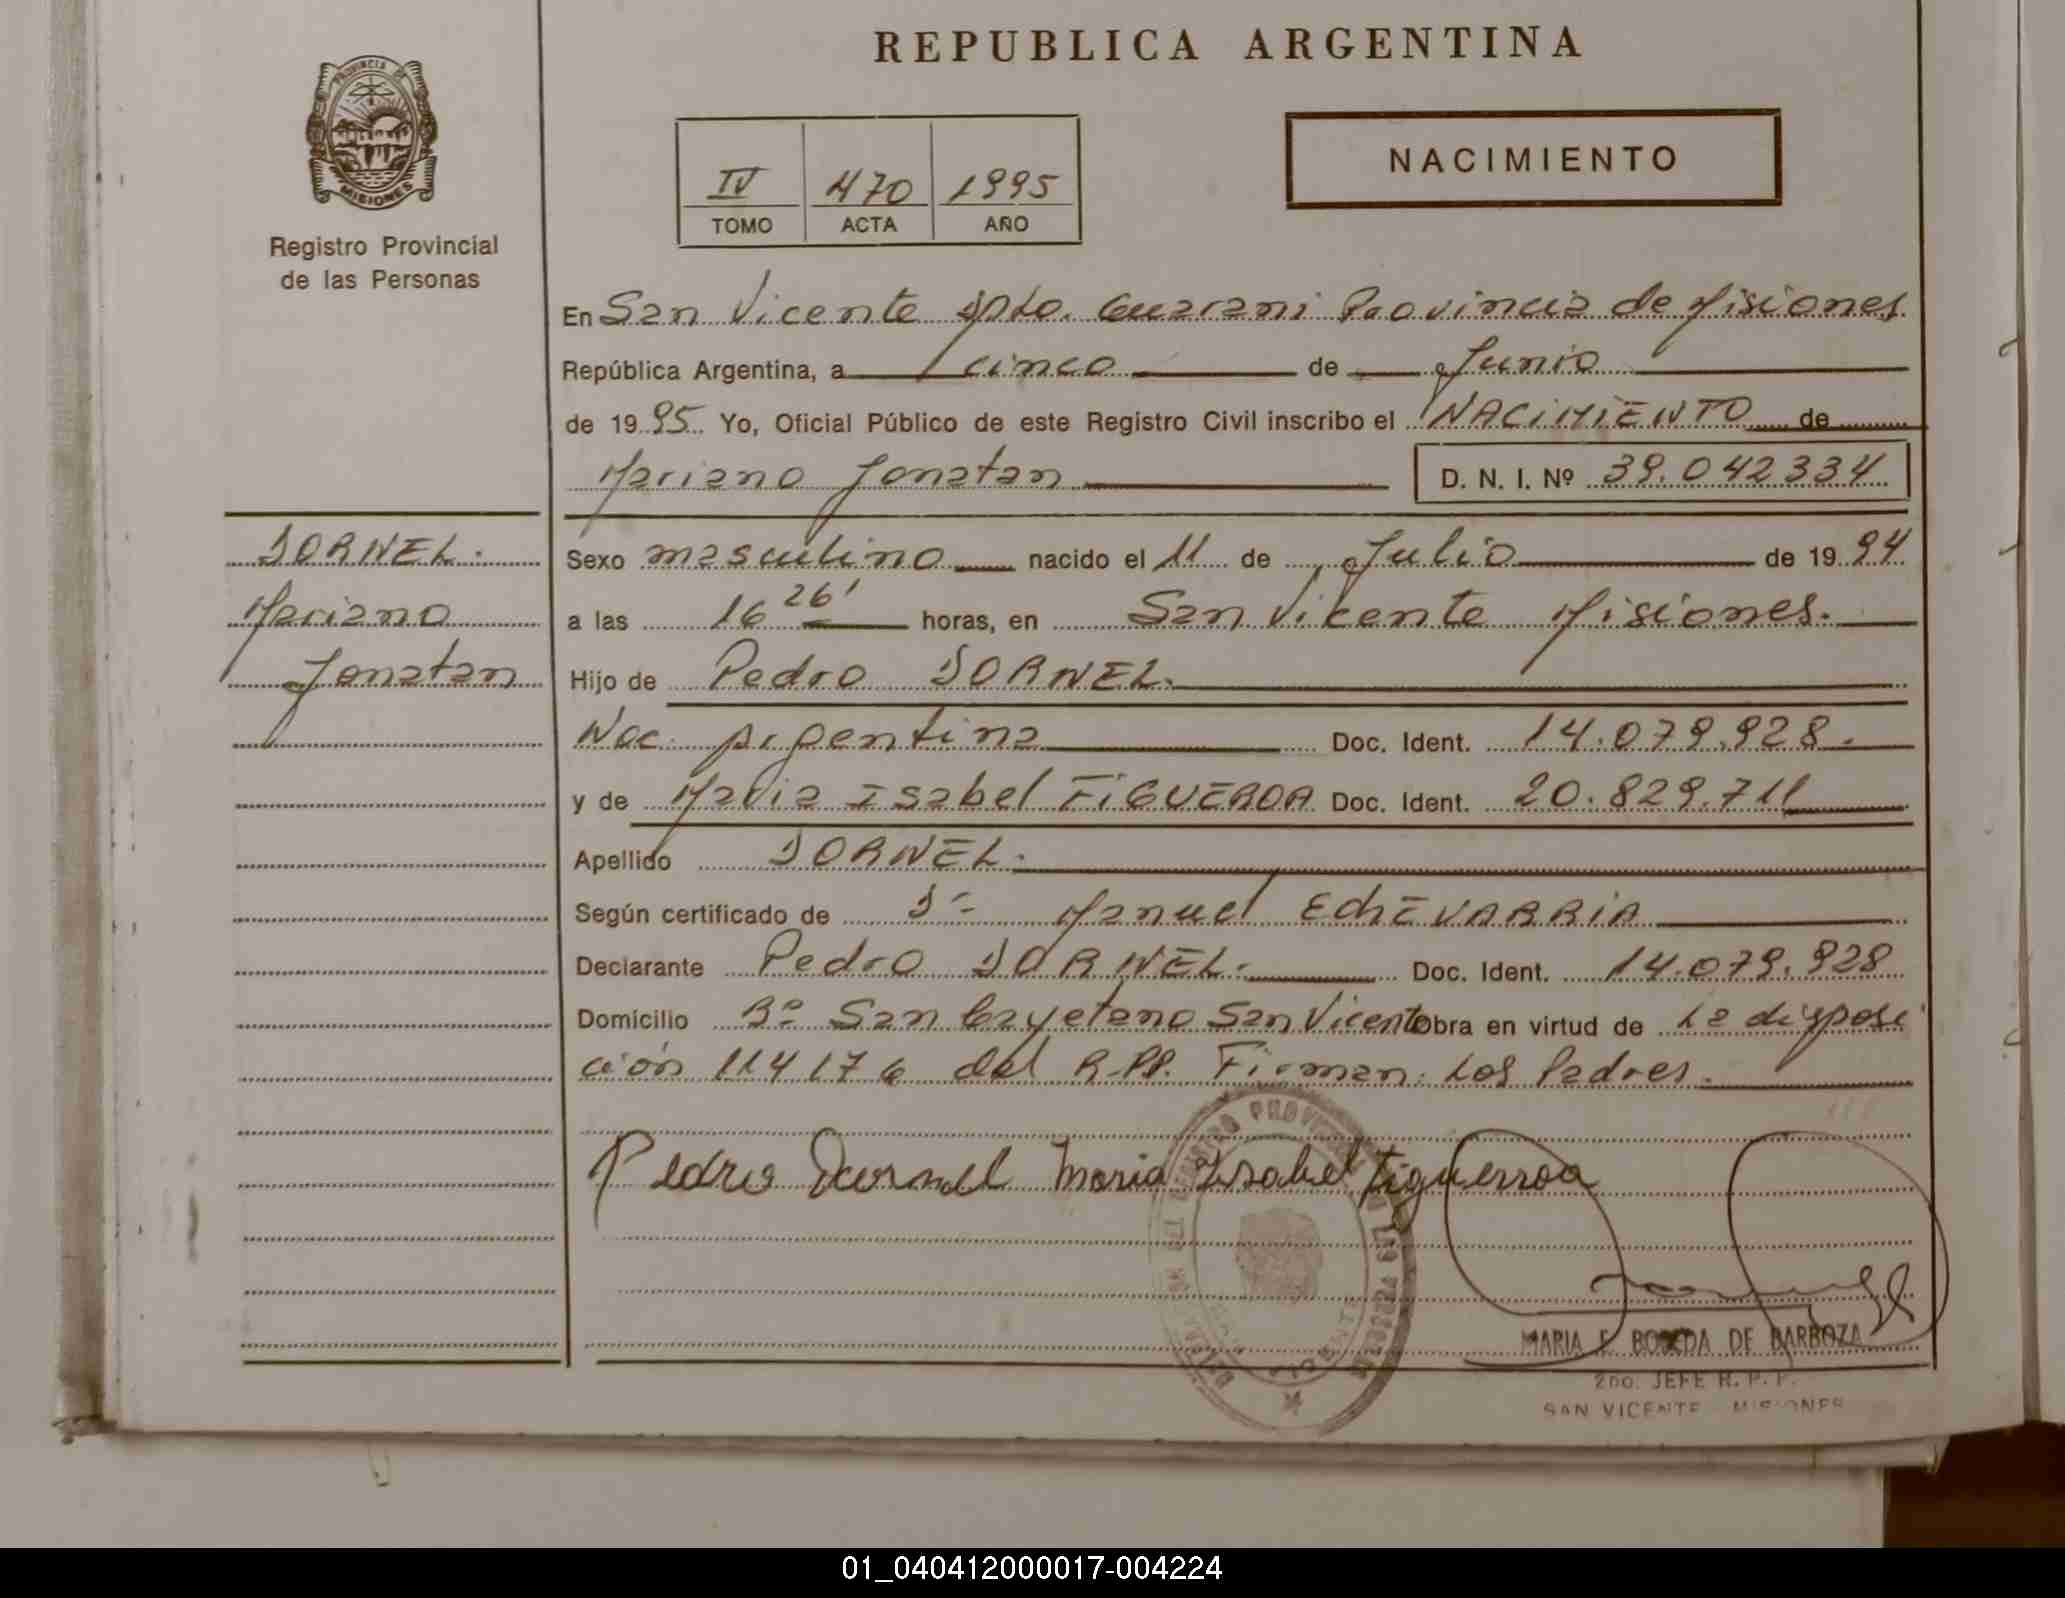 REPUBLICA ARGENTINA
PROVINCIA DE
MISIONES
Registro Provincial
de las Personas
IV 470 1995
TOMO ACTA AÑO
NACIMIENTO
En San Vicente Dpto. Guarani Provincia de Misiones
República Argentina, a cinco de Junio
de 1995 Yo, Oficial Público de este Registro Civil inscribo el NACIMIENTO de
Mariano Jonatan D. N. I. Nº 39.042334
DORNEL.
Mariano
Jonatan
Sexo masculino nacido el 11 de Julio de 1994
a las 16 26' horas, en San Vicente Misiones.
Hijo de Pedro DORNEL.
Nac. Argentina Doc. Ident. 14.079.928.
y de Maria Isabel FIGUEROA Doc. Ident. 20.829.711
Apellido DORNEL.
Según certificado de Dr Manuel EChEVARRIA
Declarante Pedro DORNEL. Doc. Ident. 14.079.928
Domicilio Bº San Cayetano San Vicente Obra en virtud de la disposi
ción 114176 del R.PP. Firman: Los Padres.
Pedro Dornel Maria Isabel Figuerroa
MARIA E. BOVEDA DE BARBOZA
2DO. JEFE R. P. P.
SAN VICENTE MISIONES
01_040412000017-004224